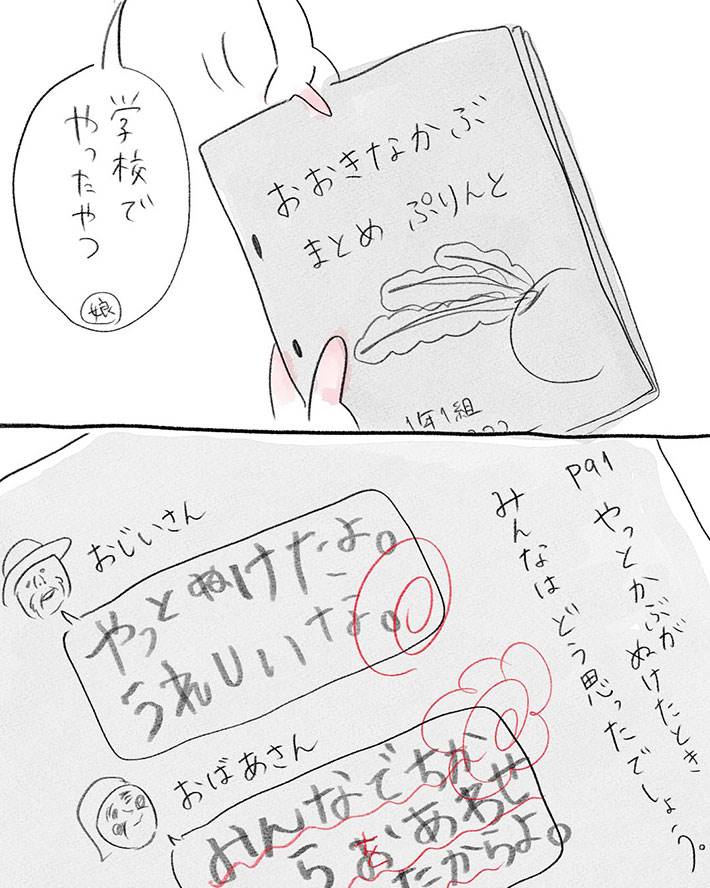 学校で
やったやつ
娘
おおきなかぶ
まとめ ぷりんと
1年1組
P91 やっとかぶが
ぬけたとき
みんなは どう思ったでしょう。
おじいさん
やっとぬけたよ。
うれしいなよ。
おばあさん
みんなでちか
らおあわせ
たからよ。